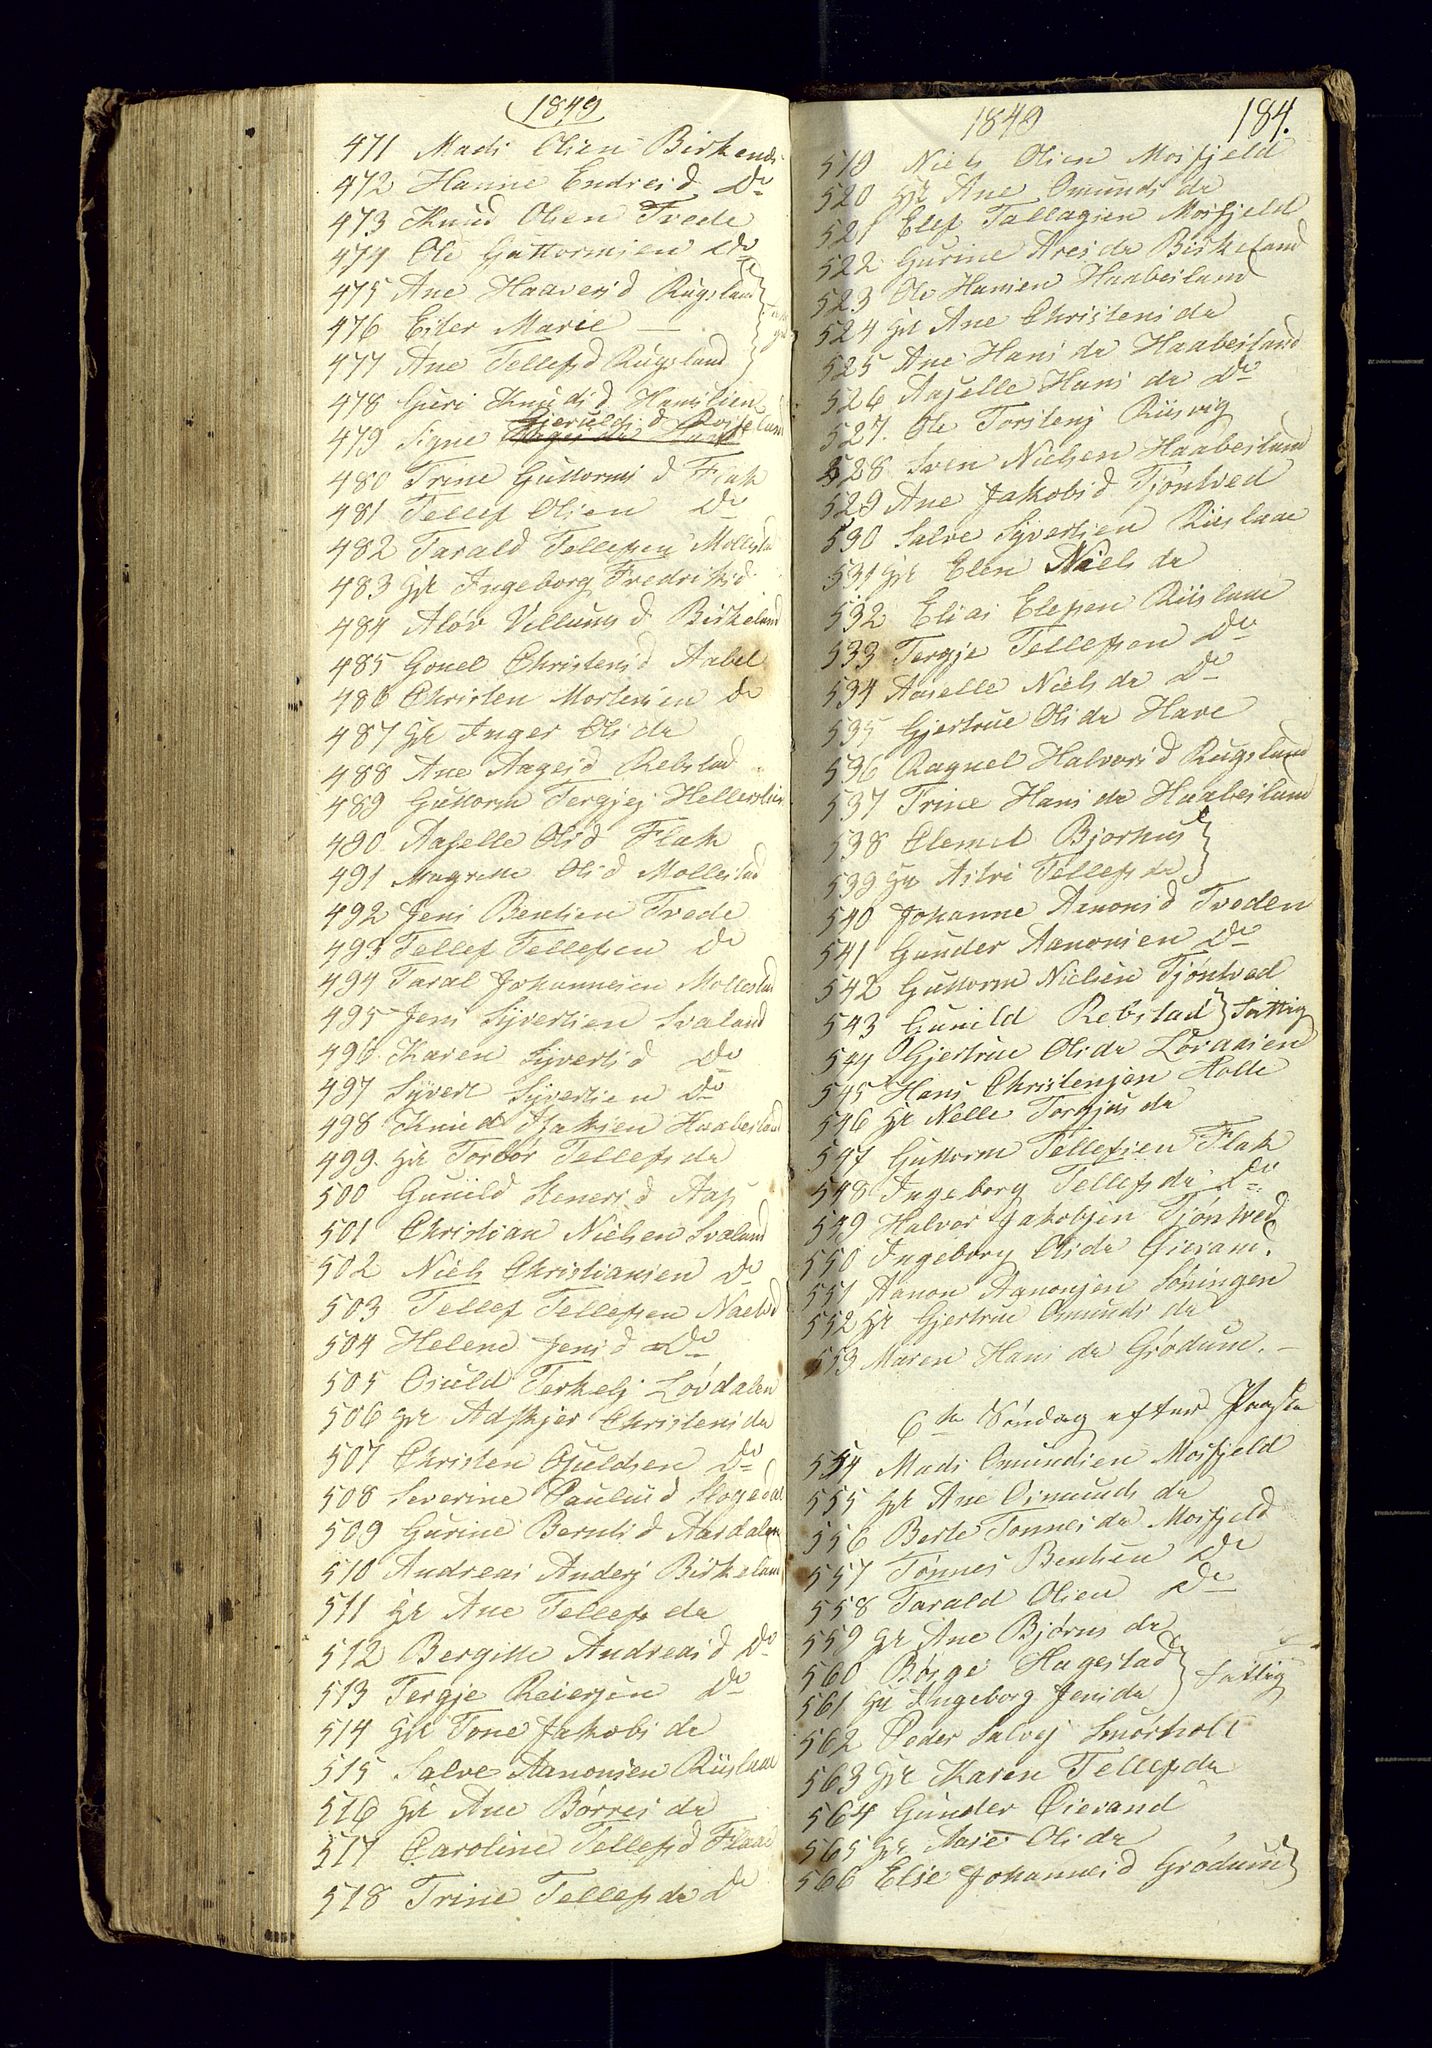 1849
471 Mads Olsen Birkenes
472 Hanne Endresd Do
473 Knud Olsen Tvede
474 Ole Guttormsen Do
475 Ane Haaversd Rugsland
476 Ester Marie —
477 Ane Tellefsd Rugsland
478 Guri Knudsd Hamslien
479 Signe Gjeruldsd Rosseland
480 Trine Guttormsd Flak
481 Tellef Olsen Do
482 Tarald Tellefsen Mollestad
483 Hr Ingeborg Fredriksd
484 Aslov Villumsd Birkeland
485 Gonel Christensd Aabel
486 Christen Mortensen Do
487 Hr Inger Olsda
488 Ane Aagesd Rebstad
489 Guttorm Tergjes Hellerslien
490 Aaselle Olsd Flak
491 Magrette Olsd Mollestad
492 Jens Bentsen Tvede
493 Tellef Tellefsen Do
494 Taral Johannesen Mollestad
495 Jens Syvertsen Svaland
496 Karen Syvertsd Do
497 Syvert Syvertsen Do
498 Knud Isaksen Haabesland
499 Hr Torbor Tellefsda
500 Gunild Stenersd Aas
501 Christian Nielsen Svaland
502 Niels Christiansen Do
503 Tellef Tellefsen
504 Helene Jensd Do
505 Osuld Terkels Lovdalen
506 Hr Adskjer Christensda
507 Christen Osuldsen Do
508 Severine Paulusd
509 Gurine Berntsd Aasdalen
510 Andreas Anders Birkeland
511 Hr Ane Tellefsda
512 Bergitte Andreasd Do
513 Tergje Reiersen Do
514 Hr Tone Jakobsda
515 Salve Aanonsen Riisland
516 Hr Ane Børresda
517 Caroline Tellefsd Flaa
518 Trine Tellefsda Do
1849 184.
519 Niels Olsen Mosfjeld
520 Hr Ane Omundsda
521 Elef Tallagsen Mosfjeld
522 Gurine Aresda Birkeland
523 Ole Hansen Haabesland
524 Hr Ane Christensda
525 Ane Hansda Haabesland
526 Aaselle Hansda Do
527. Ole Torstens Riisvig
528 Sven Nielsen Haabesland
529 Ane Jakobsd Tjöntved
530 Salve Syvertsen Riislane
531 Hr Elen Nielsda
532 Elias Elefsen Riislane
533 Tergje Tellefsen Do
534 Aaselle Nielsda Do
535 Gjertrue Olsda Have
536 Ragnel Halvorsd Rugsland
537 Trine Hansda Haabesland
538 Clemet Bjorhus
539 Hr Astri Tellefsda
540 Johanne Aanonsd Tveden
541 Gunder Aanonsen Do
542 Guttorm Nielsen Tjöntved
543 Gunild Rebstad Fattig
544 Gjertrue Olsda Lovaasen
545 Hans Christensen Holte
546 Hr Nelle Torgjusda
547 Guttorm Tellefsen Flak
548 Ingeborg Tellefsda Do
549 Halvor Jakobsen Tjöntved
550 Ingeborg Olsda Oievand.
551 Aanon Aanonsen Söningen
552 Hr Gjertrue Omundsda
553 Maren Hansda Grødum. —
6te Söndag efter Paaske
554 Mads Omundsen Mosfjeld
555 Hr Ane Osmundsda
556 Berte Tonnesda Mosfjeld
557 Tönnes Bentsen Do
558 Tarald Olsen Do
559 Hr Ane Bjørnsda
560 Børge Hagestad
561 Hr Ingeborg Jensda Fattig
562 Peder Salves Smörholt
563 Hr Karen Tellefsda
564 Gunder Oievand
565 Hr Aase Olsda
566 Else Johannesd Grødum